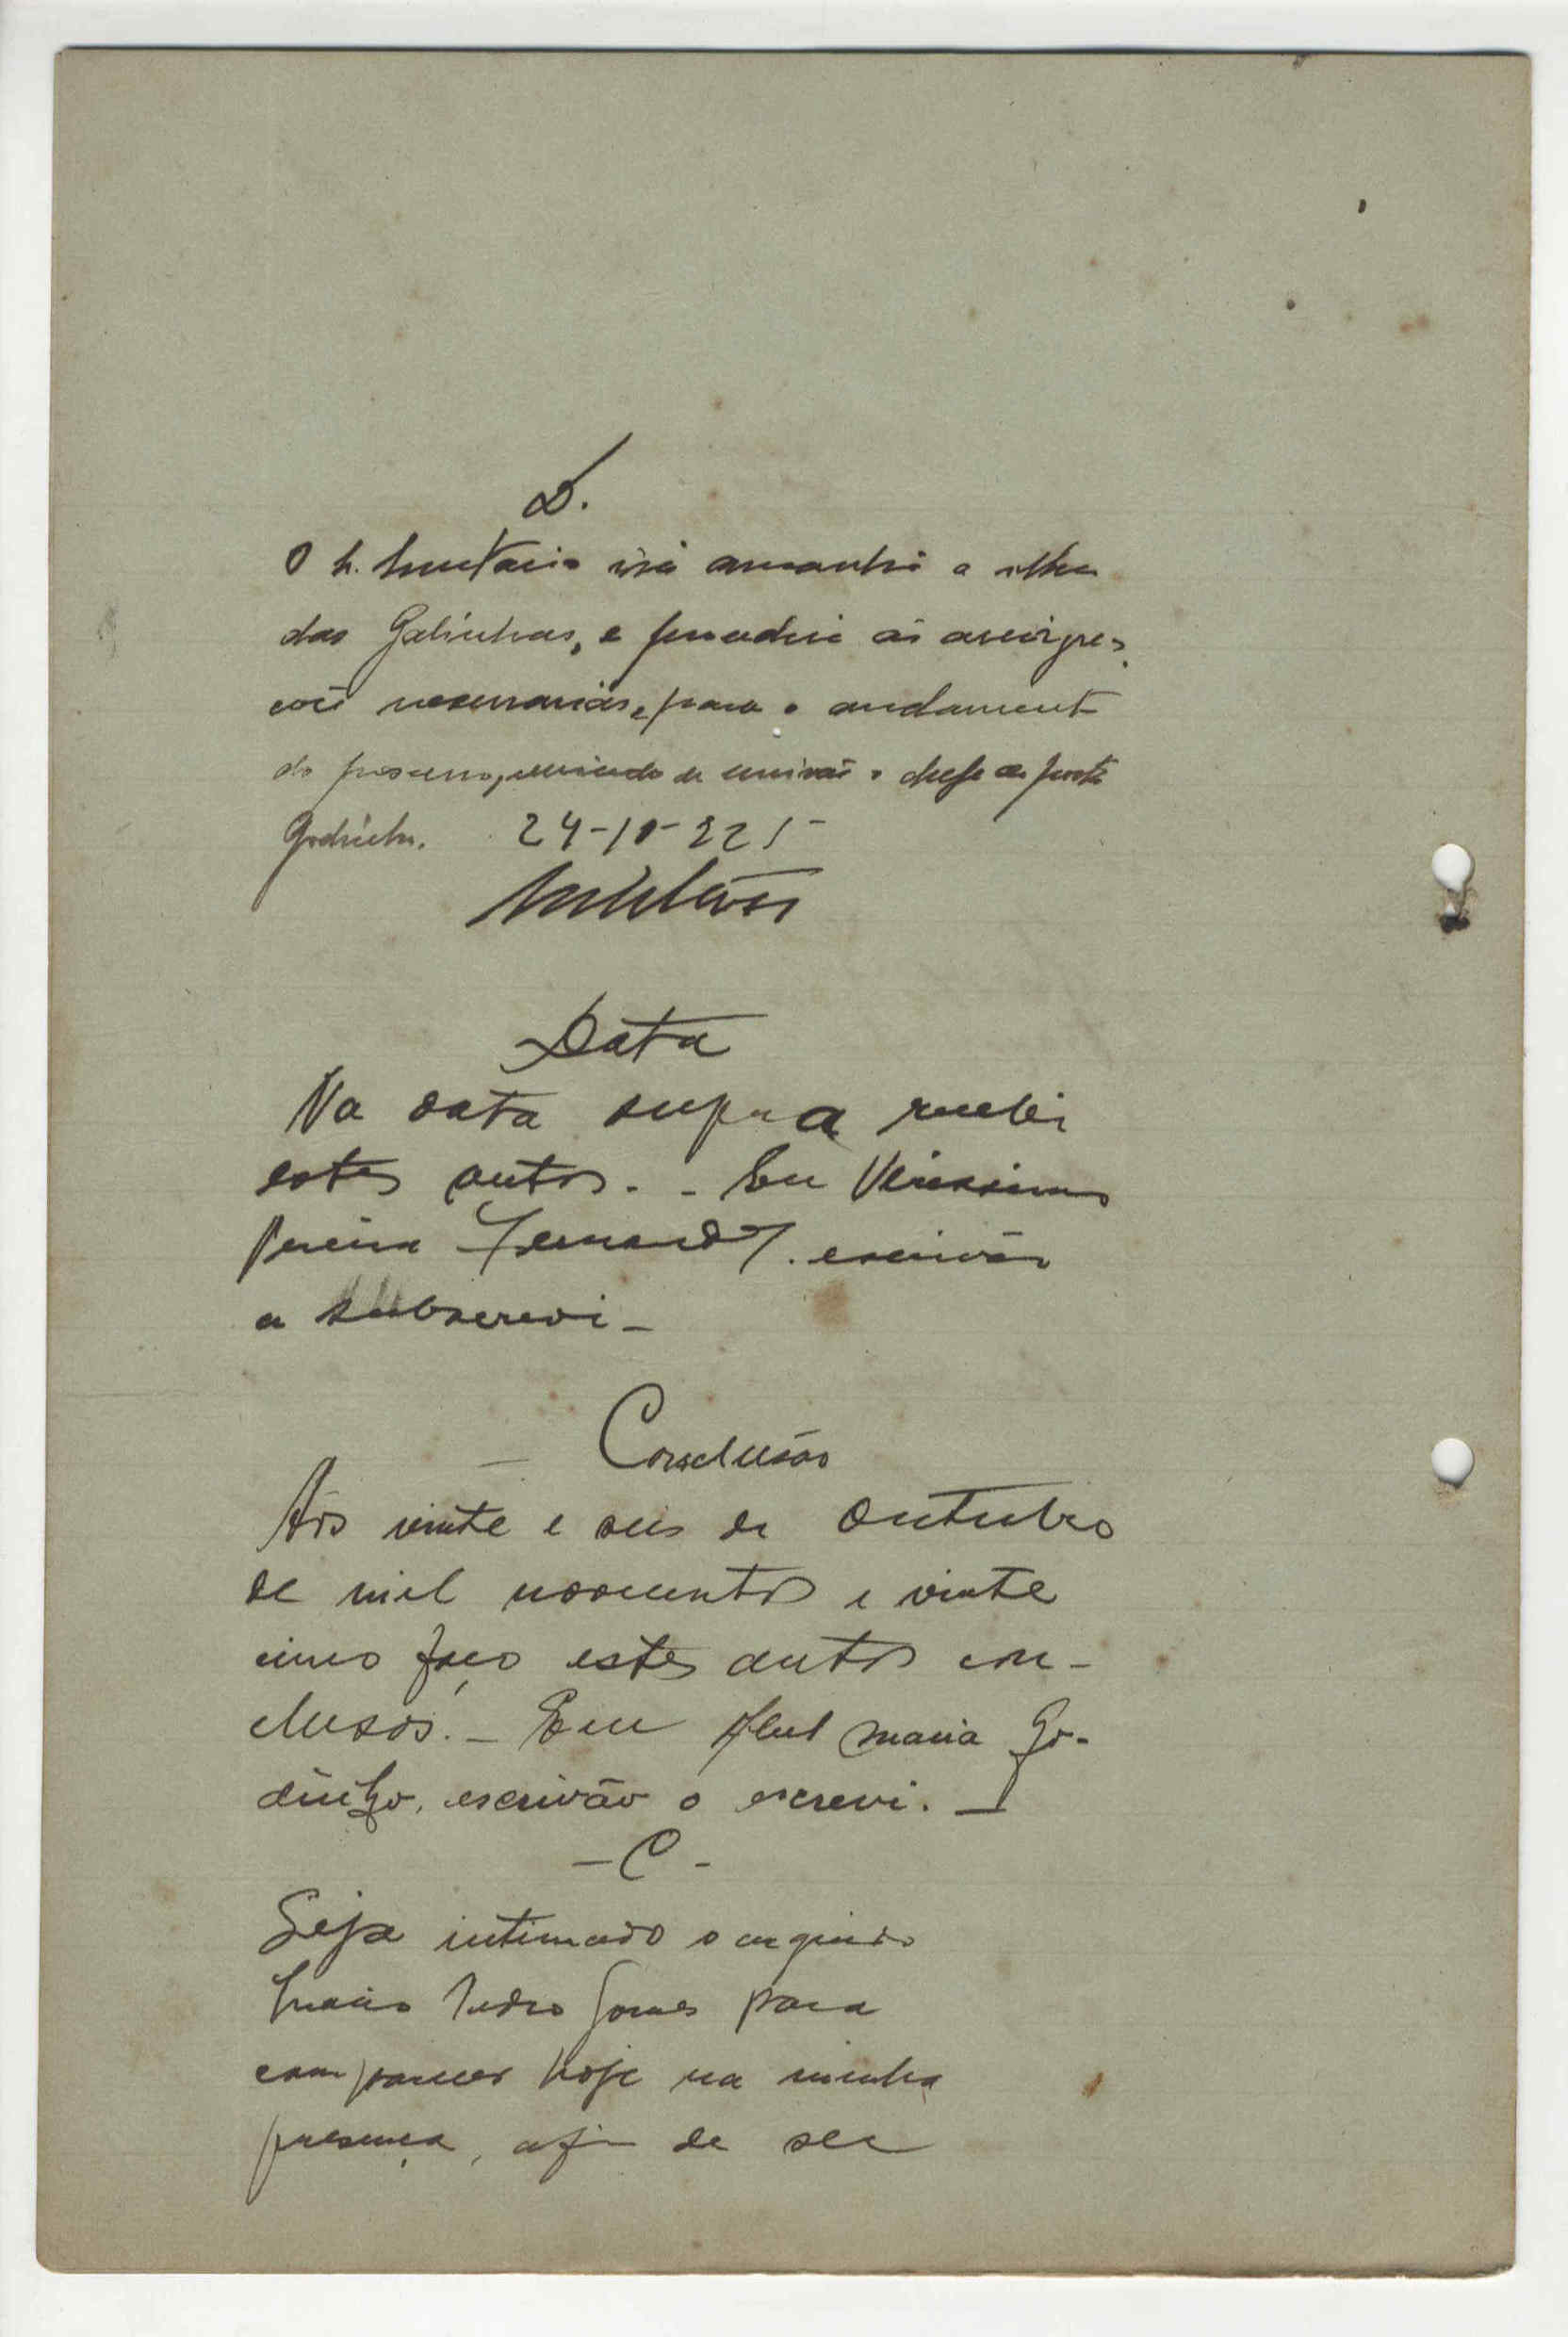 D.
O irá amanhã a ilha
das Galinhas, e procederá ás
necessarias, para o andamento
do processo, servindo de escrivão o chefe de posto
Godinho. 24-10-925
Data
Na data supra recebi
estes autos. - Eu Verissimo
Pereira Fernandes. escrivão
a subscrevi -
- Conclusão
Aos vinte e seis de Outubro
de mil novecentos e vinte
cinco faço estes autos con-
clusos. - Eu Abel Maria Go-
dinho, escrivão o escrevi. -
- C -
Seja intimado o arguido
Inacio Pedro Gomes para
comparecer hoje na minha
presença, afim de ser